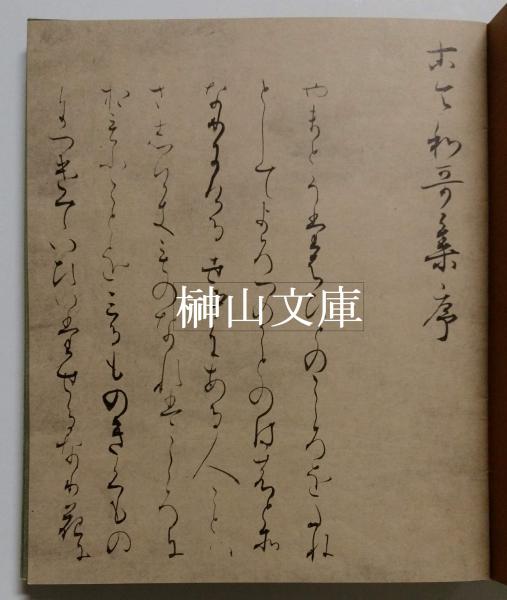 古今和哥集序
やまとうたはひとのこゝろをたね
としてよろつのことのはとそ
なれりける世中にある人ことは
さしけきものなれはこゝろに
おもふことをみるものきくもの
につけていひいたせるなり花に
榊山文庫